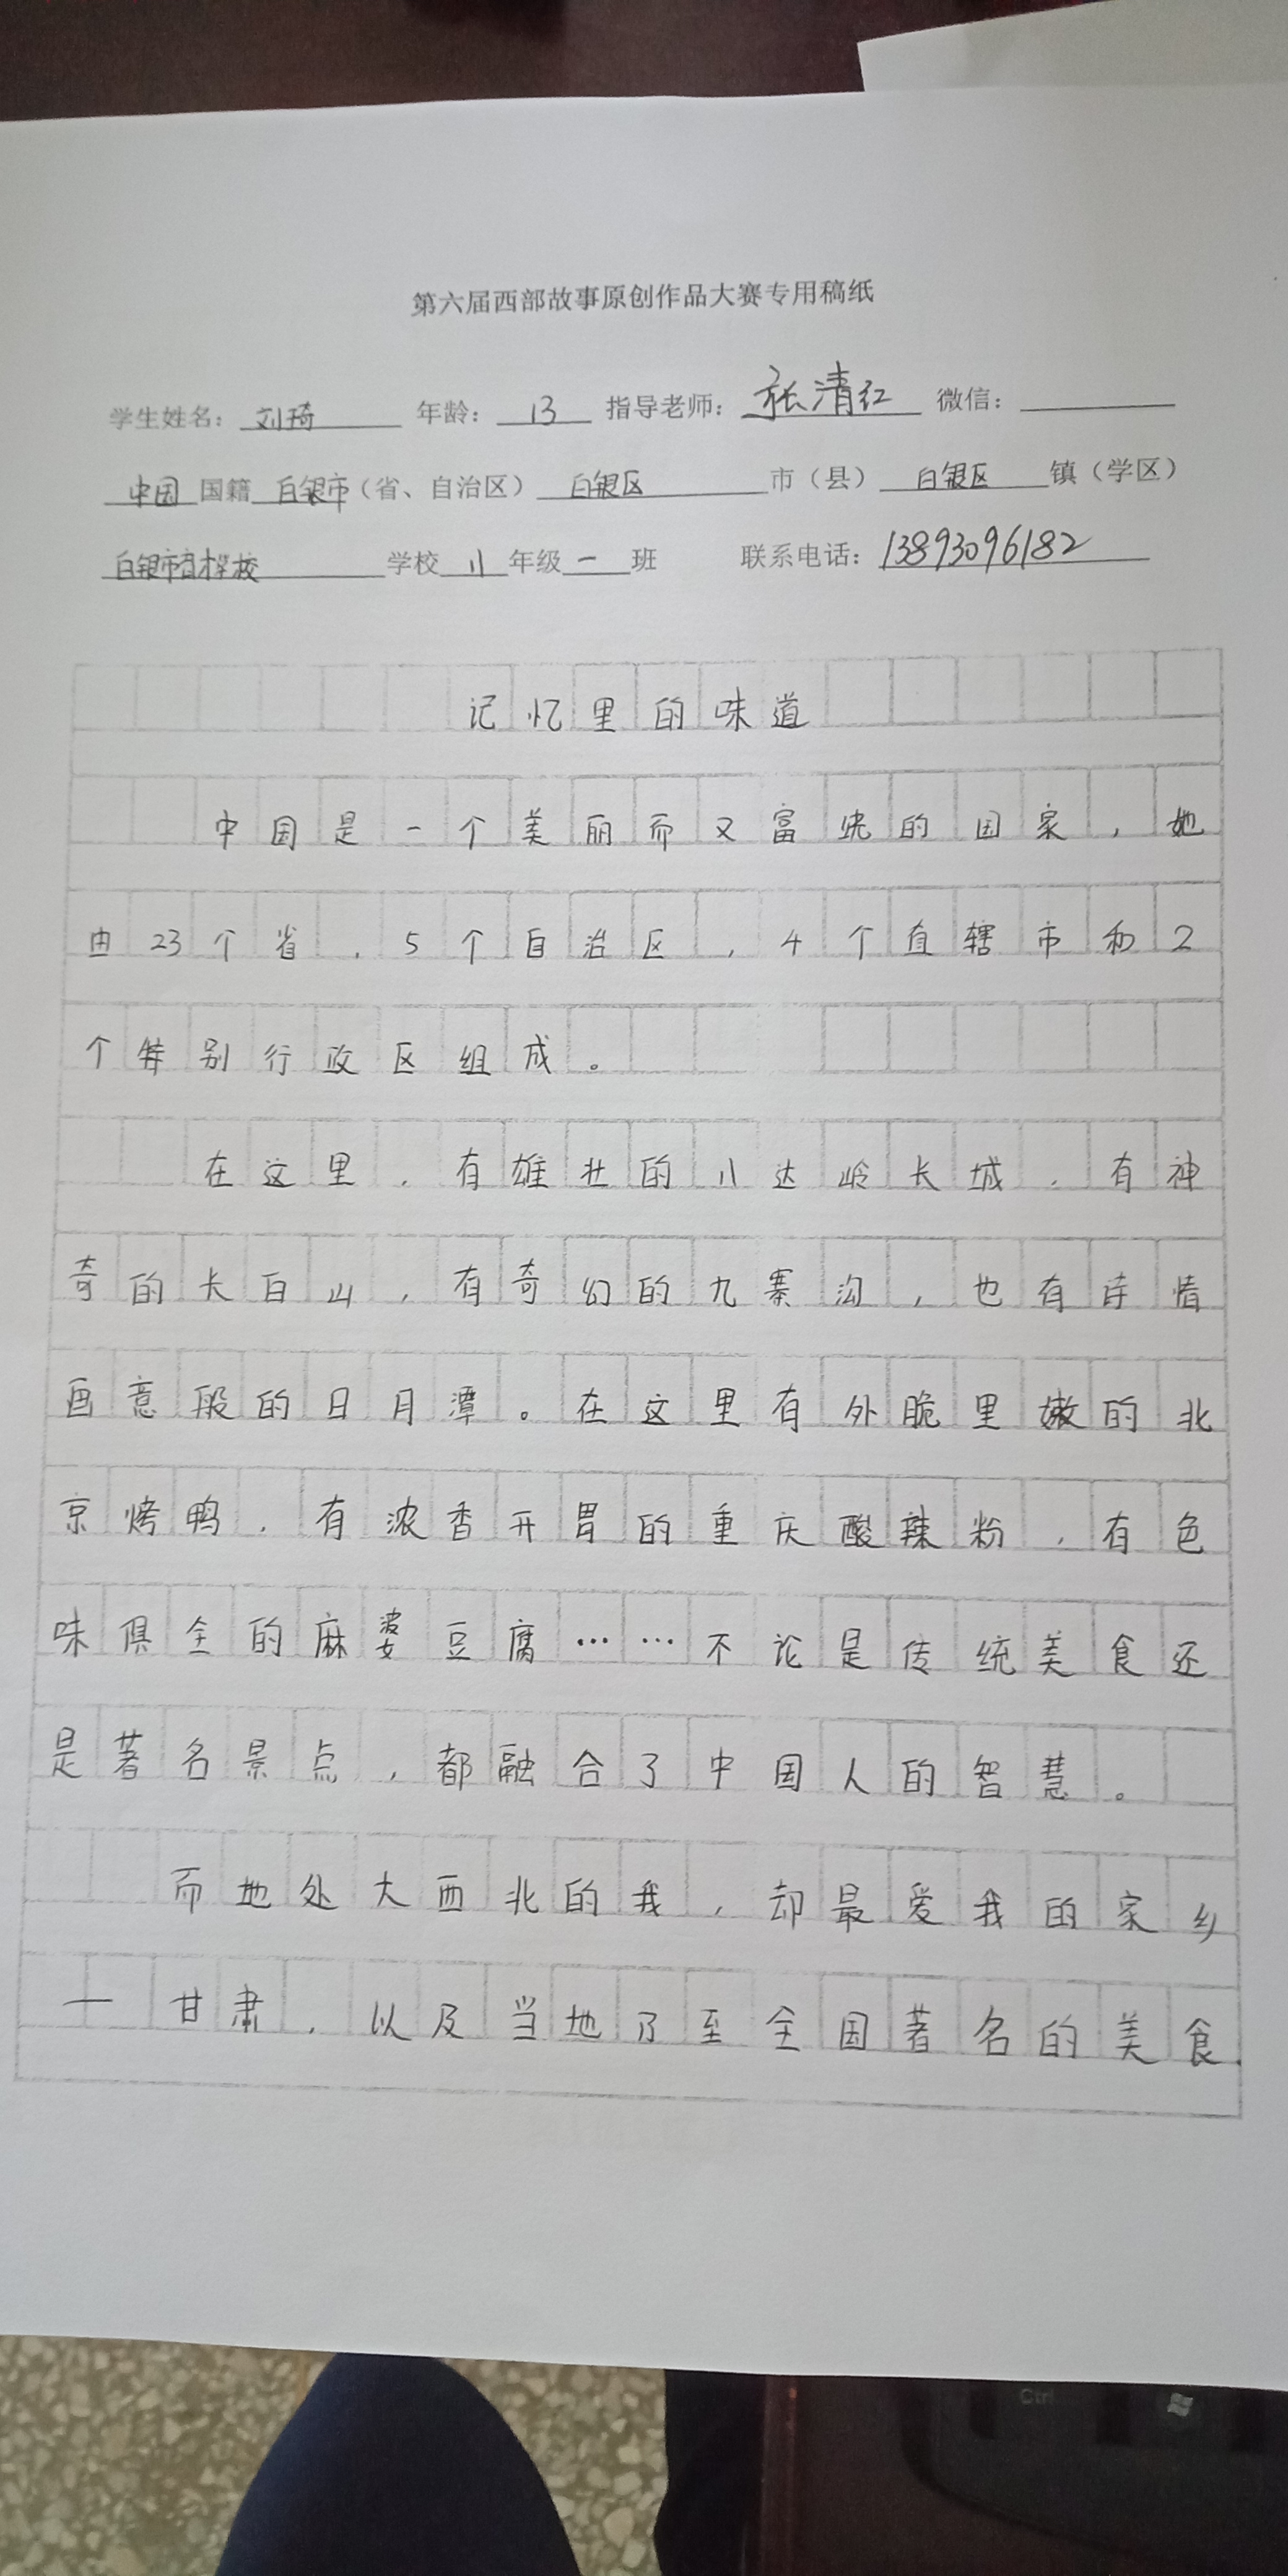 第六届西部故事原创作品大赛专用稿纸
学生姓名：刘琦 年龄：13 指导老师：张清红 微信：
中国 国籍 白银市（省、自治区） 白银区 市（县） 白银区 镇（学区）
白银市育才学校 学校 八 年级 一 班 联系电话：13893096182
记忆里的味道
中国是一个美丽而又富饶的国家，她
由23个省，5个自治区，4个直辖市和2
个特别行政区组成。
在这里，有雄壮的八达岭长城，有神
奇的长白山，有奇幻的九寨沟，也有诗情
画意般的日月潭。在这里有外脆里嫩的北
京烤鸭，有浓香开胃的重庆酸辣粉，有色
味俱全的麻婆豆腐……不论是传统美食还
是著名景点，都融合了中国人的智慧。
而地处大西北的我，却最爱我的家乡
—甘肃，以及当地乃至全国著名的美食.
Ctrl